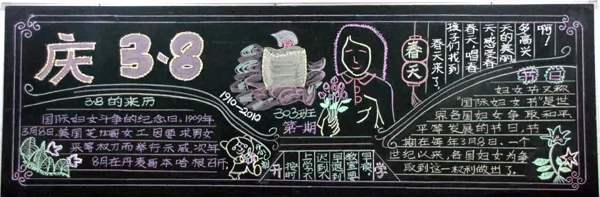 庆3·8
3·8的来历
国际妇女斗争的纪念日,1909年
3月8日,美国芝加哥女工因要求男女
平等权力而举行示威,次年
8月在丹麦哥本哈根
1910-2010
303班
第一期
春天
啊!
多高兴
天的美丽
天,感受春
春天,唱春
孩子们找到
春天来了。
节日
妇女节又称
"国际妇女节"是世
界各国妇女争取和平
平等发展的节日,节
期在每年3月8日.一个
世纪以来,各国妇女为争
取到这一权利做出了.
开学